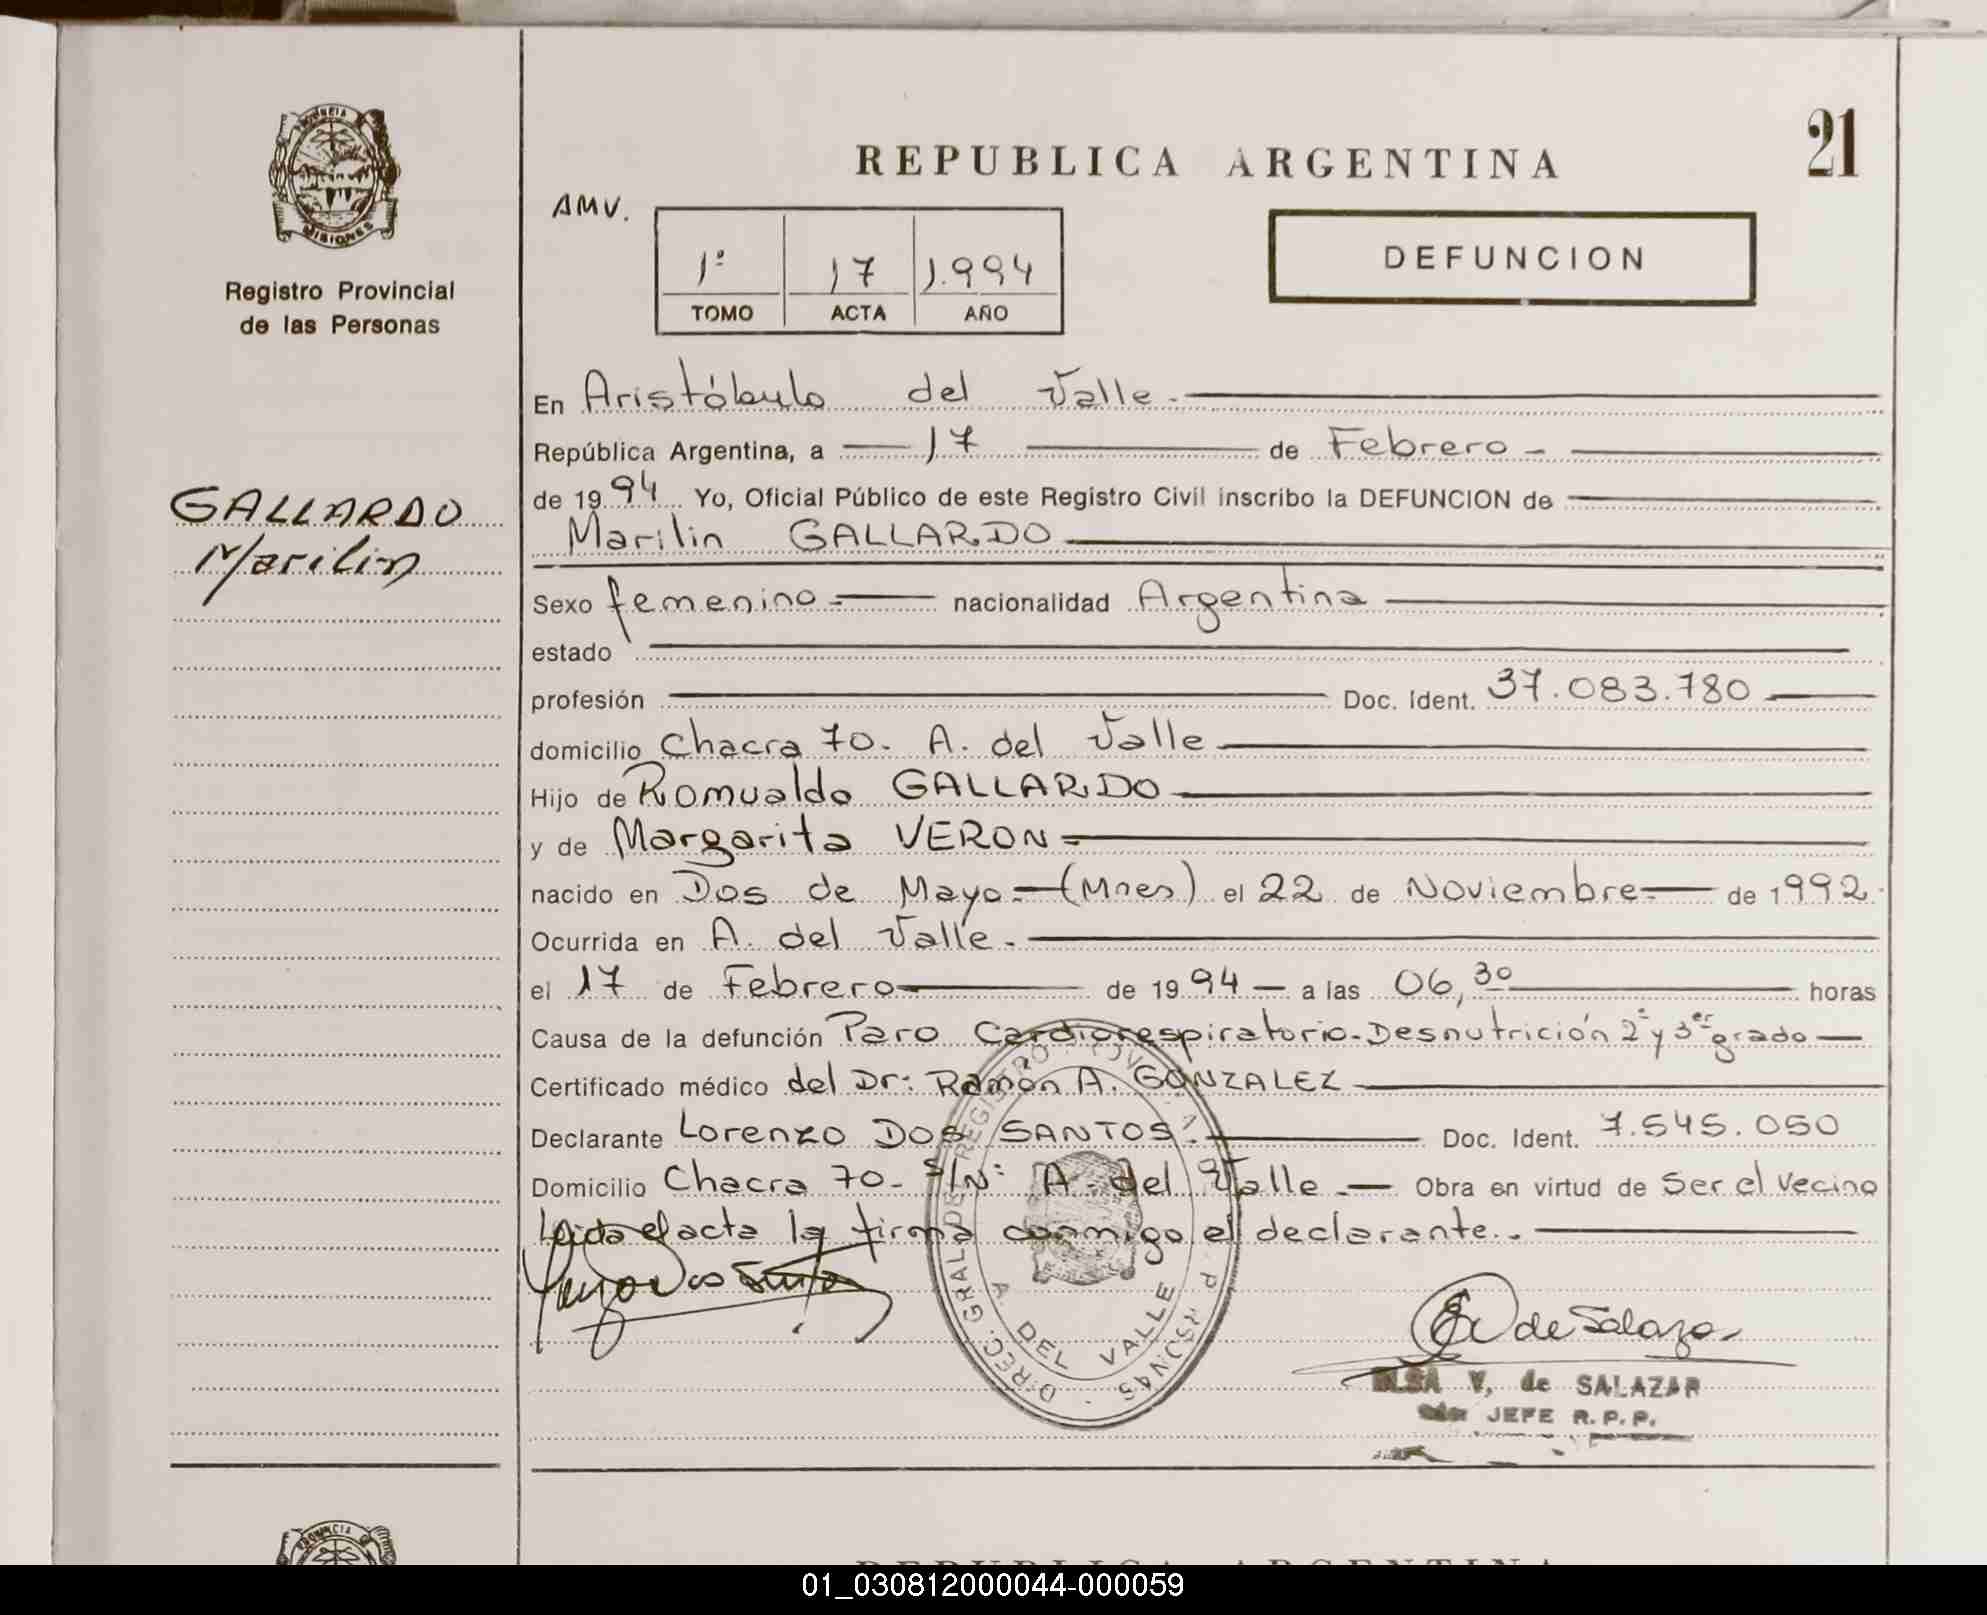 PROVINCIA DE
MISIONES
Registro Provincial
de las Personas
GALLARDO
Marilin
REPUBLICA ARGENTINA
21
AMV.
1º 17 1.994
TOMO ACTA AÑO
DEFUNCION
En Aristóbulo del Valle.
República Argentina, a 17 de Febrero -
de 1994 Yo, Oficial Público de este Registro Civil inscribo la DEFUNCION de
Marilin GALLARDO
Sexo femenino nacionalidad Argentina
estado
profesión Doc. Ident. 37.083.780
domicilio Chacra 70. A. del Valle
Hijo de Romualdo GALLARDO
y de Margarita VERON
nacido en Dos de Mayo - (Mnes) el 22 de Noviembre de 1992.
Ocurrida en A. del Valle.
el 17 de Febrero de 1994 a las 06,30 horas
Causa de la defunción Paro Cardiorespiratorio-Desnutrición 2º y 3er grado
Certificado médico del Dr: Ramón A. GONZALEZ
Declarante Lorenzo DOS SANTOS. Doc. Ident. 7.545.050
Domicilio Chacra 70- S/Nº A. del Valle. Obra en virtud de Ser el vecino
Leida el acta la firma conmigo el declarante.
DIREC. GRAL DE REGISTRO
A. DEL VALLE
de Salazar
ELSA V, de SALAZAR
JEFE R.P.P.
PROVINCIA DE
REPUBLICA ARGENTINA
01_030812000044-000059